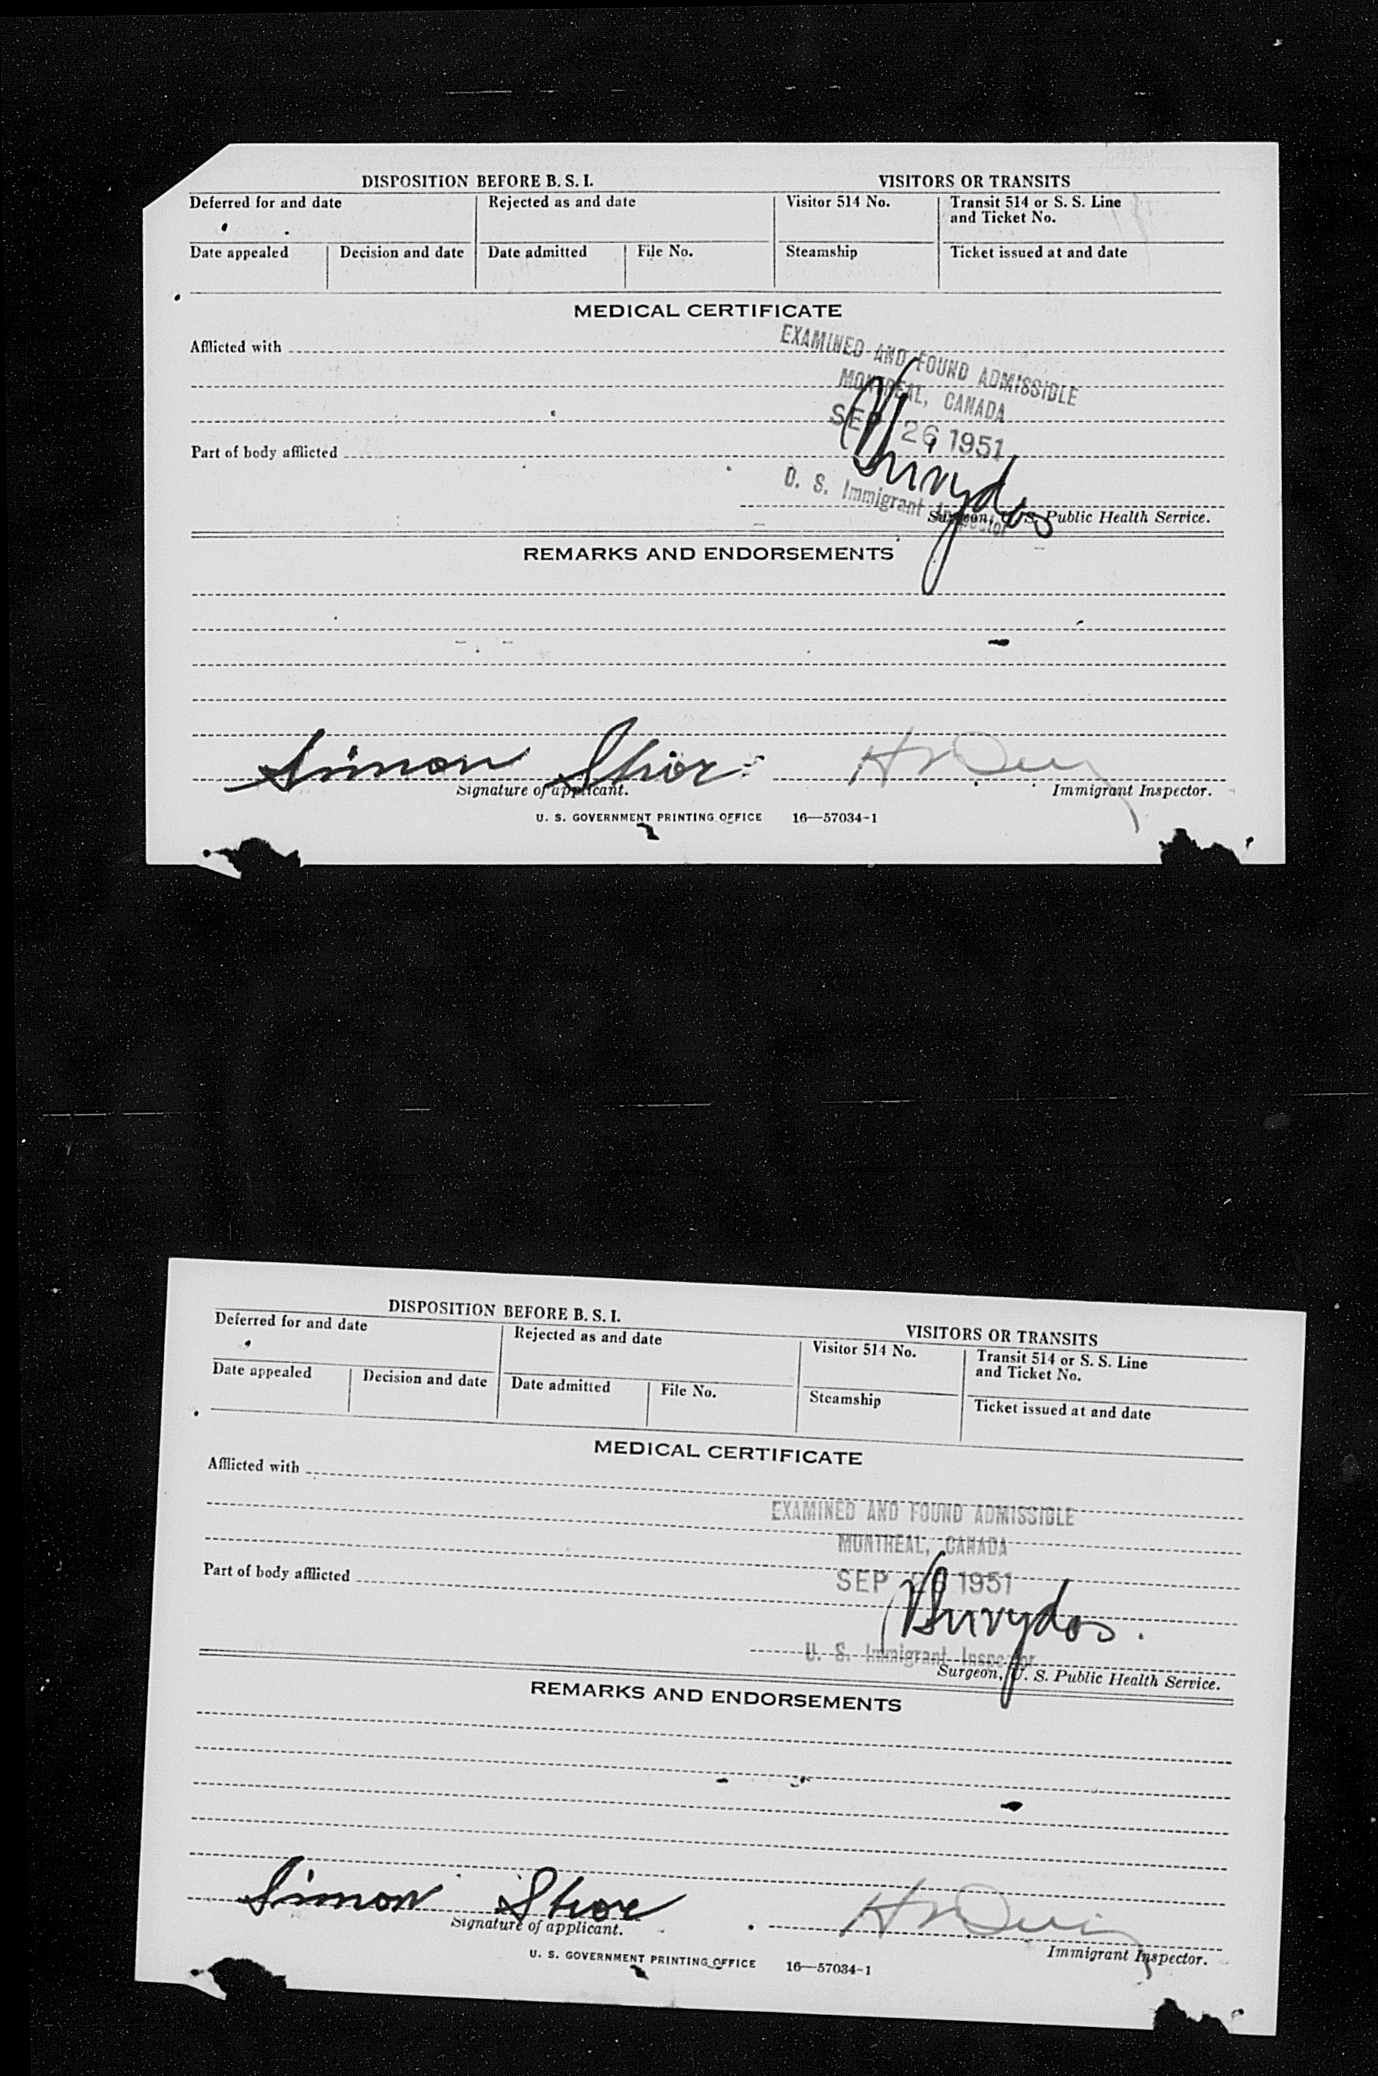 DISPOSITION BEFORE B. S. I.
VISITORS OR TRANSITS
Deferred for and date
Rejected as and date
Visitor 514 No.
Transit 514 or S. S. Line
and Ticket No.
Date appealed
Decision and date
Date admitted
File No.
Steamship
Ticket issued at and date
MEDICAL CERTIFICATE
Afflicted with
EXAMINED AND FOUND ADMISSIBLE
MONTREAL, CANADA
SEP 26 1951
Part of body afflicted
U. S. Immigrant Inspector
Surgeon, U. S. Public Health Service.
REMARKS AND ENDORSEMENTS
Simon Shor
Signature of applicant.
Immigrant Inspector.
U. S. GOVERNMENT PRINTING OFFICE 16—57034-1
DISPOSITION BEFORE B. S. I.
VISITORS OR TRANSITS
Deferred for and date
Rejected as and date
Visitor 514 No.
Transit 514 or S. S. Line
and Ticket No.
Date appealed
Decision and date
Date admitted
File No.
Steamship
Ticket issued at and date
MEDICAL CERTIFICATE
Afflicted with
EXAMINED AND FOUND ADMISSIBLE
MONTREAL, CANADA
SEP 1951
Part of body afflicted
U. S. Immigrant Inspector
Surgeon, U. S. Public Health Service.
REMARKS AND ENDORSEMENTS
Simon Shor
Signature of applicant.
Immigrant Inspector.
U. S. GOVERNMENT PRINTING OFFICE 16—57034-1